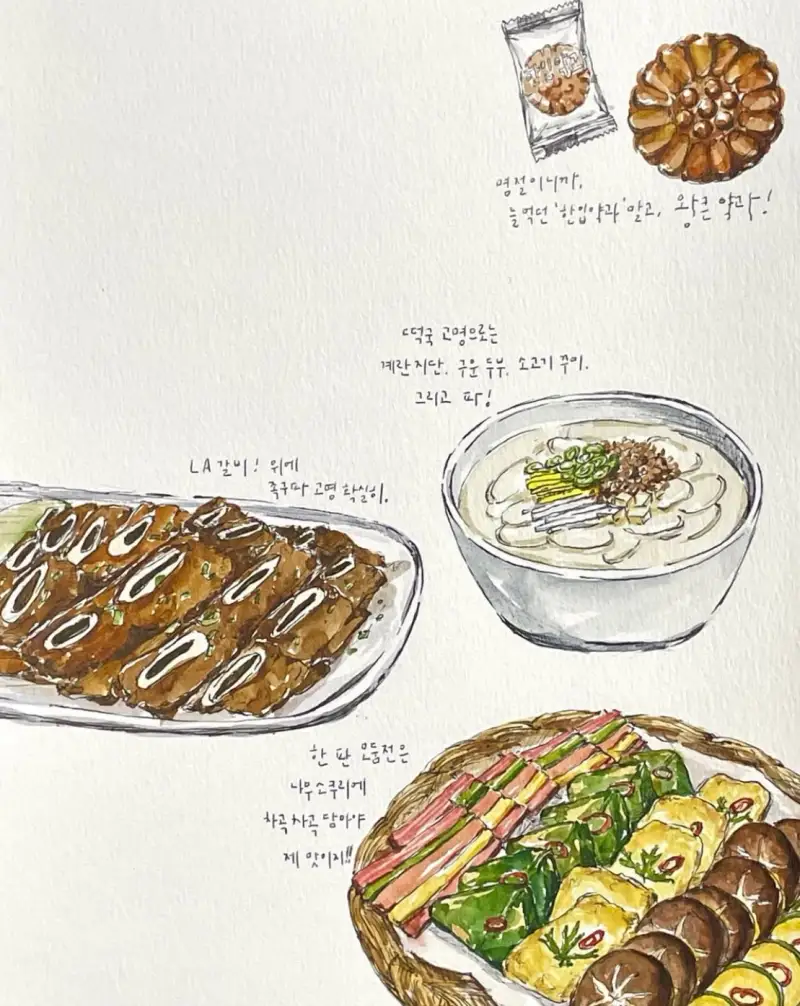 명절이니까,
늘 먹던 '한입약과' 말고, 왕큰 약과!
떡국 고명으로는
계란지단, 구운 두부, 소고기 꾸미,
그리고 파!
LA갈비! 위에
고명
한 판 모둠전은
나무소쿠리에
차곡차곡 담아야
제 맛이지!!